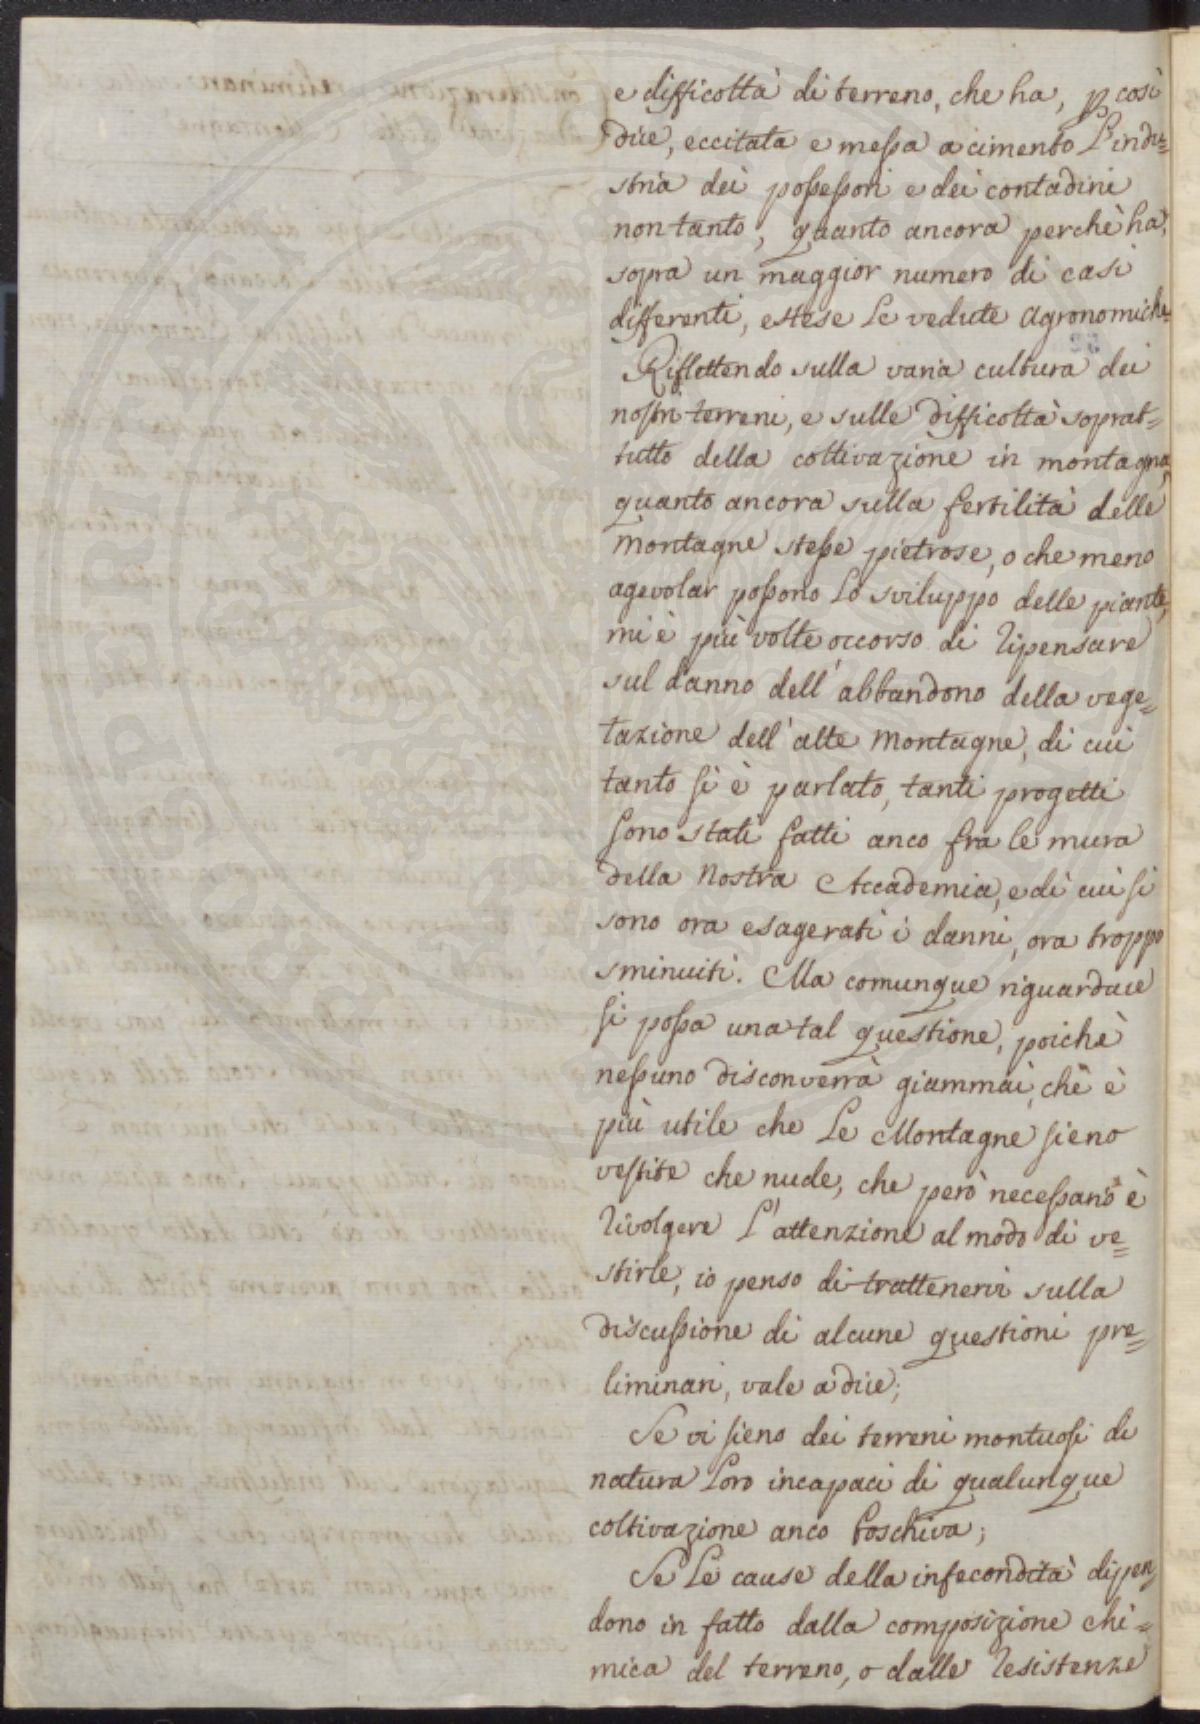 e difficoltà di terreno, che ha, p così
dire, eccitata e messa a cimento l'indu=
stria dei possessori e dei contadini
non tanto, quanto ancora perchè ha,
sopra un maggior numero di casi
differenti, estese le vedute agronomiche.
Riflettendo sulla varia cultura dei
nostri terreni, e sulle difficoltà soprat=
tutto della coltivazione in montagna,
quanto ancora sulla fertilità delle
montagne stesse pietrose, o che meno
agevolar possono lo sviluppo delle piante,
mi è più volte occorso di ripensare
sul danno dell'abbandono della vege=
tazione dell'alte montagne, di cui
tanto si è parlato, tanti progetti
sono stati fatti anco fra le mura
della Nostra Accademia, e di cui si
sono ora esagerati i danni, ora troppo
sminuiti. Ma comunque riguardare
si possa una tal questione, poichè
nessuno disconverrà giammai, che è
più utile che le Montagne sieno
vestite che nude, che però necessario è
rivolgere l'attenzione al modo di ve=
stirle, io penso di trattenervi sulla
discussione di alcune questioni pre=
liminari, vale a dire;
Se vi sieno dei terreni montuosi di
natura loro incapaci di qualunque
coltivazione anco boschiva;
Se le cause della infecondità dipen
dono in fatto dalla composizione chi=
mica del terreno, o dalle resistenze